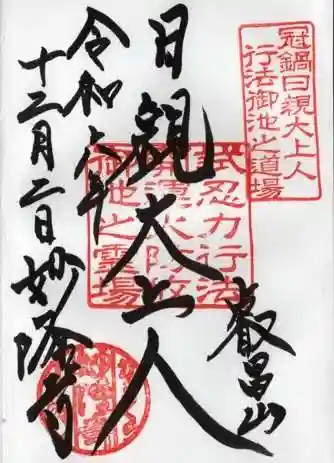 冠鍋日親大上人
行法御池之道場
叡昌山
日親大上人
試忍力行法
御池之霊場
令和六年
十二月二日妙隆寺